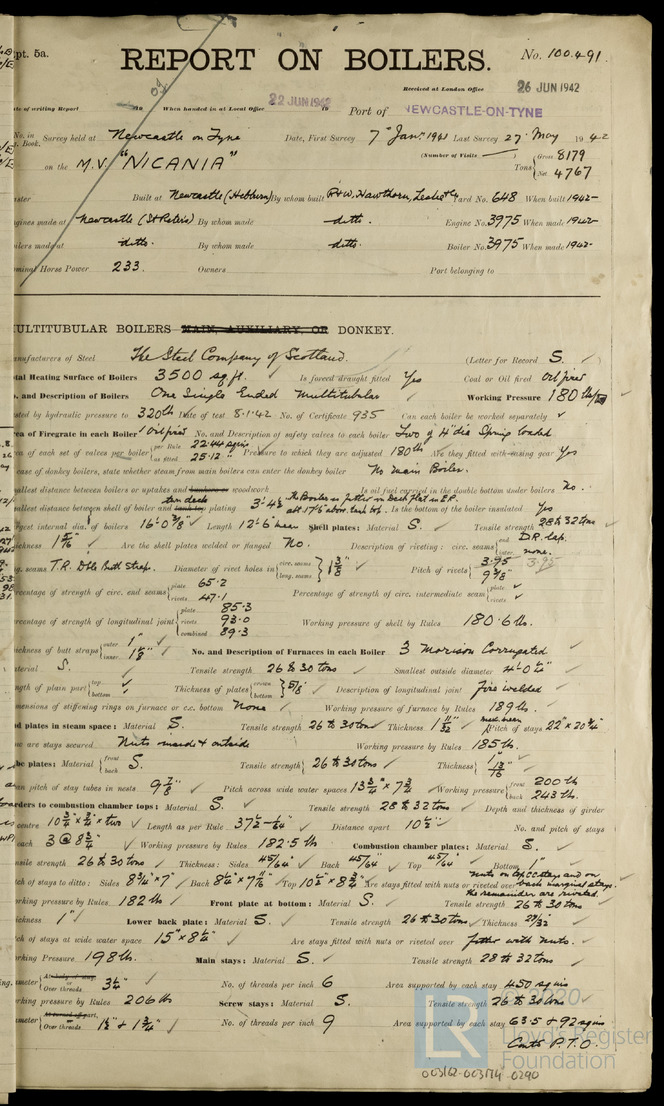 pt. 5a.
REPORT ON BOILERS.
No. 100.491.
Received at London Office 26 JUN 1942
of writing Report 19 When handed in at Local Office 22 JUN 1942 19 Port of NEWCASTLE-ON-TYNE
No. in Survey held at Newcastle on Tyne Date, First Survey 7th Jany 1941 Last Survey 27th May 1942
Book. (Number of Visits )
on the M.V. "NICANIA" Tons { Gross 8179 Net 4767
Built at Newcastle (Hebburn) By whom built R+W. Hawthorn, Leslie & Co Yard No. 648 When built 1942
gines made at Newcastle (St Peters) By whom made ditto. Engine No. 3975 When made 1942
ilers made at ditto. By whom made ditto. Boiler No. 3975 When made 1942
minal Horse Power 233. Owners Port belonging to
ULTITUBULAR BOILERS MAIN, AUXILIARY, OR DONKEY.
anufacturers of Steel The Steel Company of Scotland. (Letter for Record S. )
tal Heating Surface of Boilers 3500 sq.ft. Is forced draught fitted Yes Coal or Oil fired oil fired
. and Description of Boilers One Single Ended Multitubular Working Pressure 180 lbs
sted by hydraulic pressure to 320 lb Date of test 8.1.42 No. of Certificate 935 Can each boiler be worked separately ✓
ea of Firegrate in each Boiler oil fired No. and Description of safety valves to each boiler Two of 4" dia Spring loaded
ea of each set of valves per boiler { per Rule 22.44 sq in as fitted 25.12 " Pressure to which they are adjusted 180 lb Are they fitted with easing gear Yes
case of donkey boilers, state whether steam from main boilers can enter the donkey boiler No main Boiler.
allest distance between boilers or uptakes and bunkers or woodwork Is oil fuel carried in the double bottom under boilers No.
allest distance between shell of boiler and tank top plating 3'-4½" Is the bottom of the boiler insulated Yes
gest internal dia. of boilers 16'-0⅜" Length 12'-6" mean Shell plates: Material S. Tensile strength 28 to 32 tons
ickness 1 5/16" Are the shell plates welded or flanged No. Description of riveting: circ. seams { end D.R. lap. inter. none.
g. seams T.R. Dble Butt Straps. Diameter of rivet holes in { circ. seams long. seams } 1⅜" Pitch of rivets { 3.95 9⅜" 3.95
rcentage of strength of circ. end seams { plate 65.2 rivets 47.1 Percentage of strength of circ. intermediate seam { plate rivets
rcentage of strength of longitudinal joint { plate 85.3 rivets 93.0 combined 89.3 Working pressure of shell by Rules 180.6 lb.
ickness of butt straps { outer 1" inner 1⅛" No. and Description of Furnaces in each Boiler 3 Morison Corrugated
aterial S. Tensile strength 26 to 30 tons Smallest outside diameter 4'-0¼"
gth of plain part { top bottom Thickness of plates { crown bottom } 5/8" Description of longitudinal joint fire welded
mensions of stiffening rings on furnace or c.c. bottom None Working pressure of furnace by Rules 189 lb.
d plates in steam space: Material S. Tensile strength 26 to 30 tons Thickness 1 11/32" Pitch of stays 22" x 20¾"
w are stays secured Nuts inside & outside Working pressure by Rules 185 lb.
be plates: Material { front back S. Tensile strength { 26 to 30 tons Thickness { 1" 13/16"
an pitch of stay tubes in nests 9⅞" Pitch across wide water spaces 13¾" x 7¾ Working pressure { front 200 lb back 243 lb.
rders to combustion chamber tops: Material S. Tensile strength 28 to 32 tons Depth and thickness of girder
centre 10¾" x ¾" x two Length as per Rule Distance apart 10½" No. and pitch of stays
each 3 @ 8¾" Working pressure by Rules 182.5 lb Combustion chamber plates: Material S.
nsile strength 26 to 30 tons Thickness: Sides 45/64" Back 45/64" Top 45/64" Bottom 1"
tch of stays to ditto: Sides 8¾" x 7" Back 8¼" x 7 11/16" Top 10½" x 8¾ Are stays fitted with nuts or riveted over Nuts on top CC stays and on back marginal stays. the remainder are riveted.
orking pressure by Rules 182 lb Front plate at bottom: Material S. Tensile strength 26 to 30 tons
ickness 1" Lower back plate: Material S. Tensile strength 26 to 30 tons Thickness 29/32"
tch of stays at wide water space 15" x 8¼" Are stays fitted with nuts or riveted over fitted with nuts.
orking Pressure 198 lb Main stays: Material S. Tensile strength 28 to 32 tons
ameter { At body of stay, or Over threads 3½" No. of threads per inch 6 Area supported by each stay 450 sq ins
orking pressure by Rules 206 lb Screw stays: Material S. Tensile strength 26 to 30 tons
ameter { At turned off part, or Over threads 1½" & 1¾" No. of threads per inch 9 Area supported by each stay 63.5 & 92 sq ins
Contd P.T.O.
LR
© 2020
Lloyd's Register
Foundation
003162-003174-0290